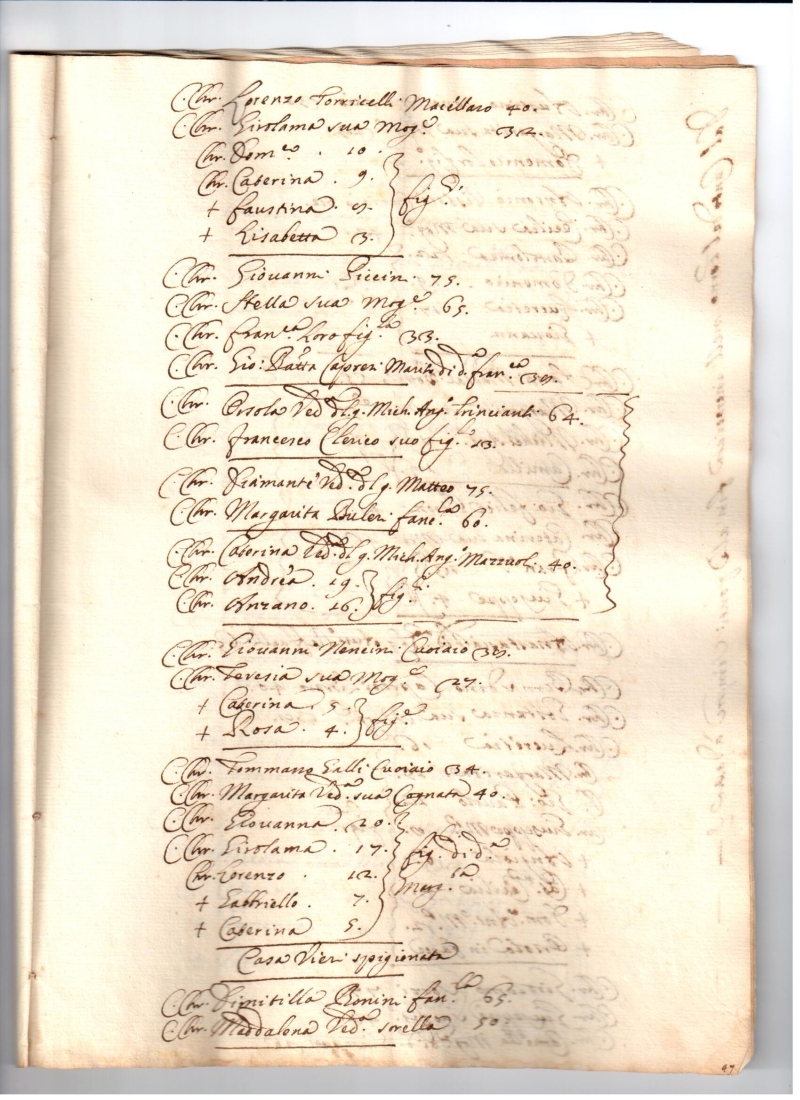 C. Chr. Lorenzo Torricelli Macellaro 40.
C. Chr. Girolama sua Mog.e 32.
Chr. Dom.co . 10.
Chr. Caterina . 9.
+ Faustina . 
+ Lisabetta 3. fig.li
C. Chr. Giovanni Piccini 75.
C. Chr. Stella sua Mog.e 65.
C. Chr. Fran.ca loro fig.la 33.
C. Chr. Gio: Batta Marito di d.a Fran.ca
C. Chr. Orsola Ved.a d. q. Mich. Ang.o Trincianti 64.
C. Chr. Francesco Clerico suo fig.o 13.
C. Chr. Diamante Ved.a d. q. Matteo 75.
C. Chr. Margarita fanc.la 60.
C. Chr. Caterina Ved.a d. q. Mich. Ang.o Mazzuoli 40.
C. Chr. Andrea . 19.
C. Chr. Anzano . 16. fig.li
C. Chr. Giovanni Nencini Cuoiaio
C. Chr. Teresia sua Mog.e 27.
+ Caterina 5.
+ Rosa . 4. fig.e
C. Chr. Tommaso Galli Cuoiaio 34.
C. Chr. Margarita Ved.a sua Cognata 40.
C. Chr. Giovanna . 20.
C. Chr. Girolama . 17. fig. di d.a
Chr. Lorenzo . 12. Marg.ta
+ Gabbriello . 7.
+ Caterina 5.
Casa Vieri spigionata
C. Chr. Dimitilla Bonini fan.la 65.
C. Chr. Maddalena Ved.a sorella 50.
47